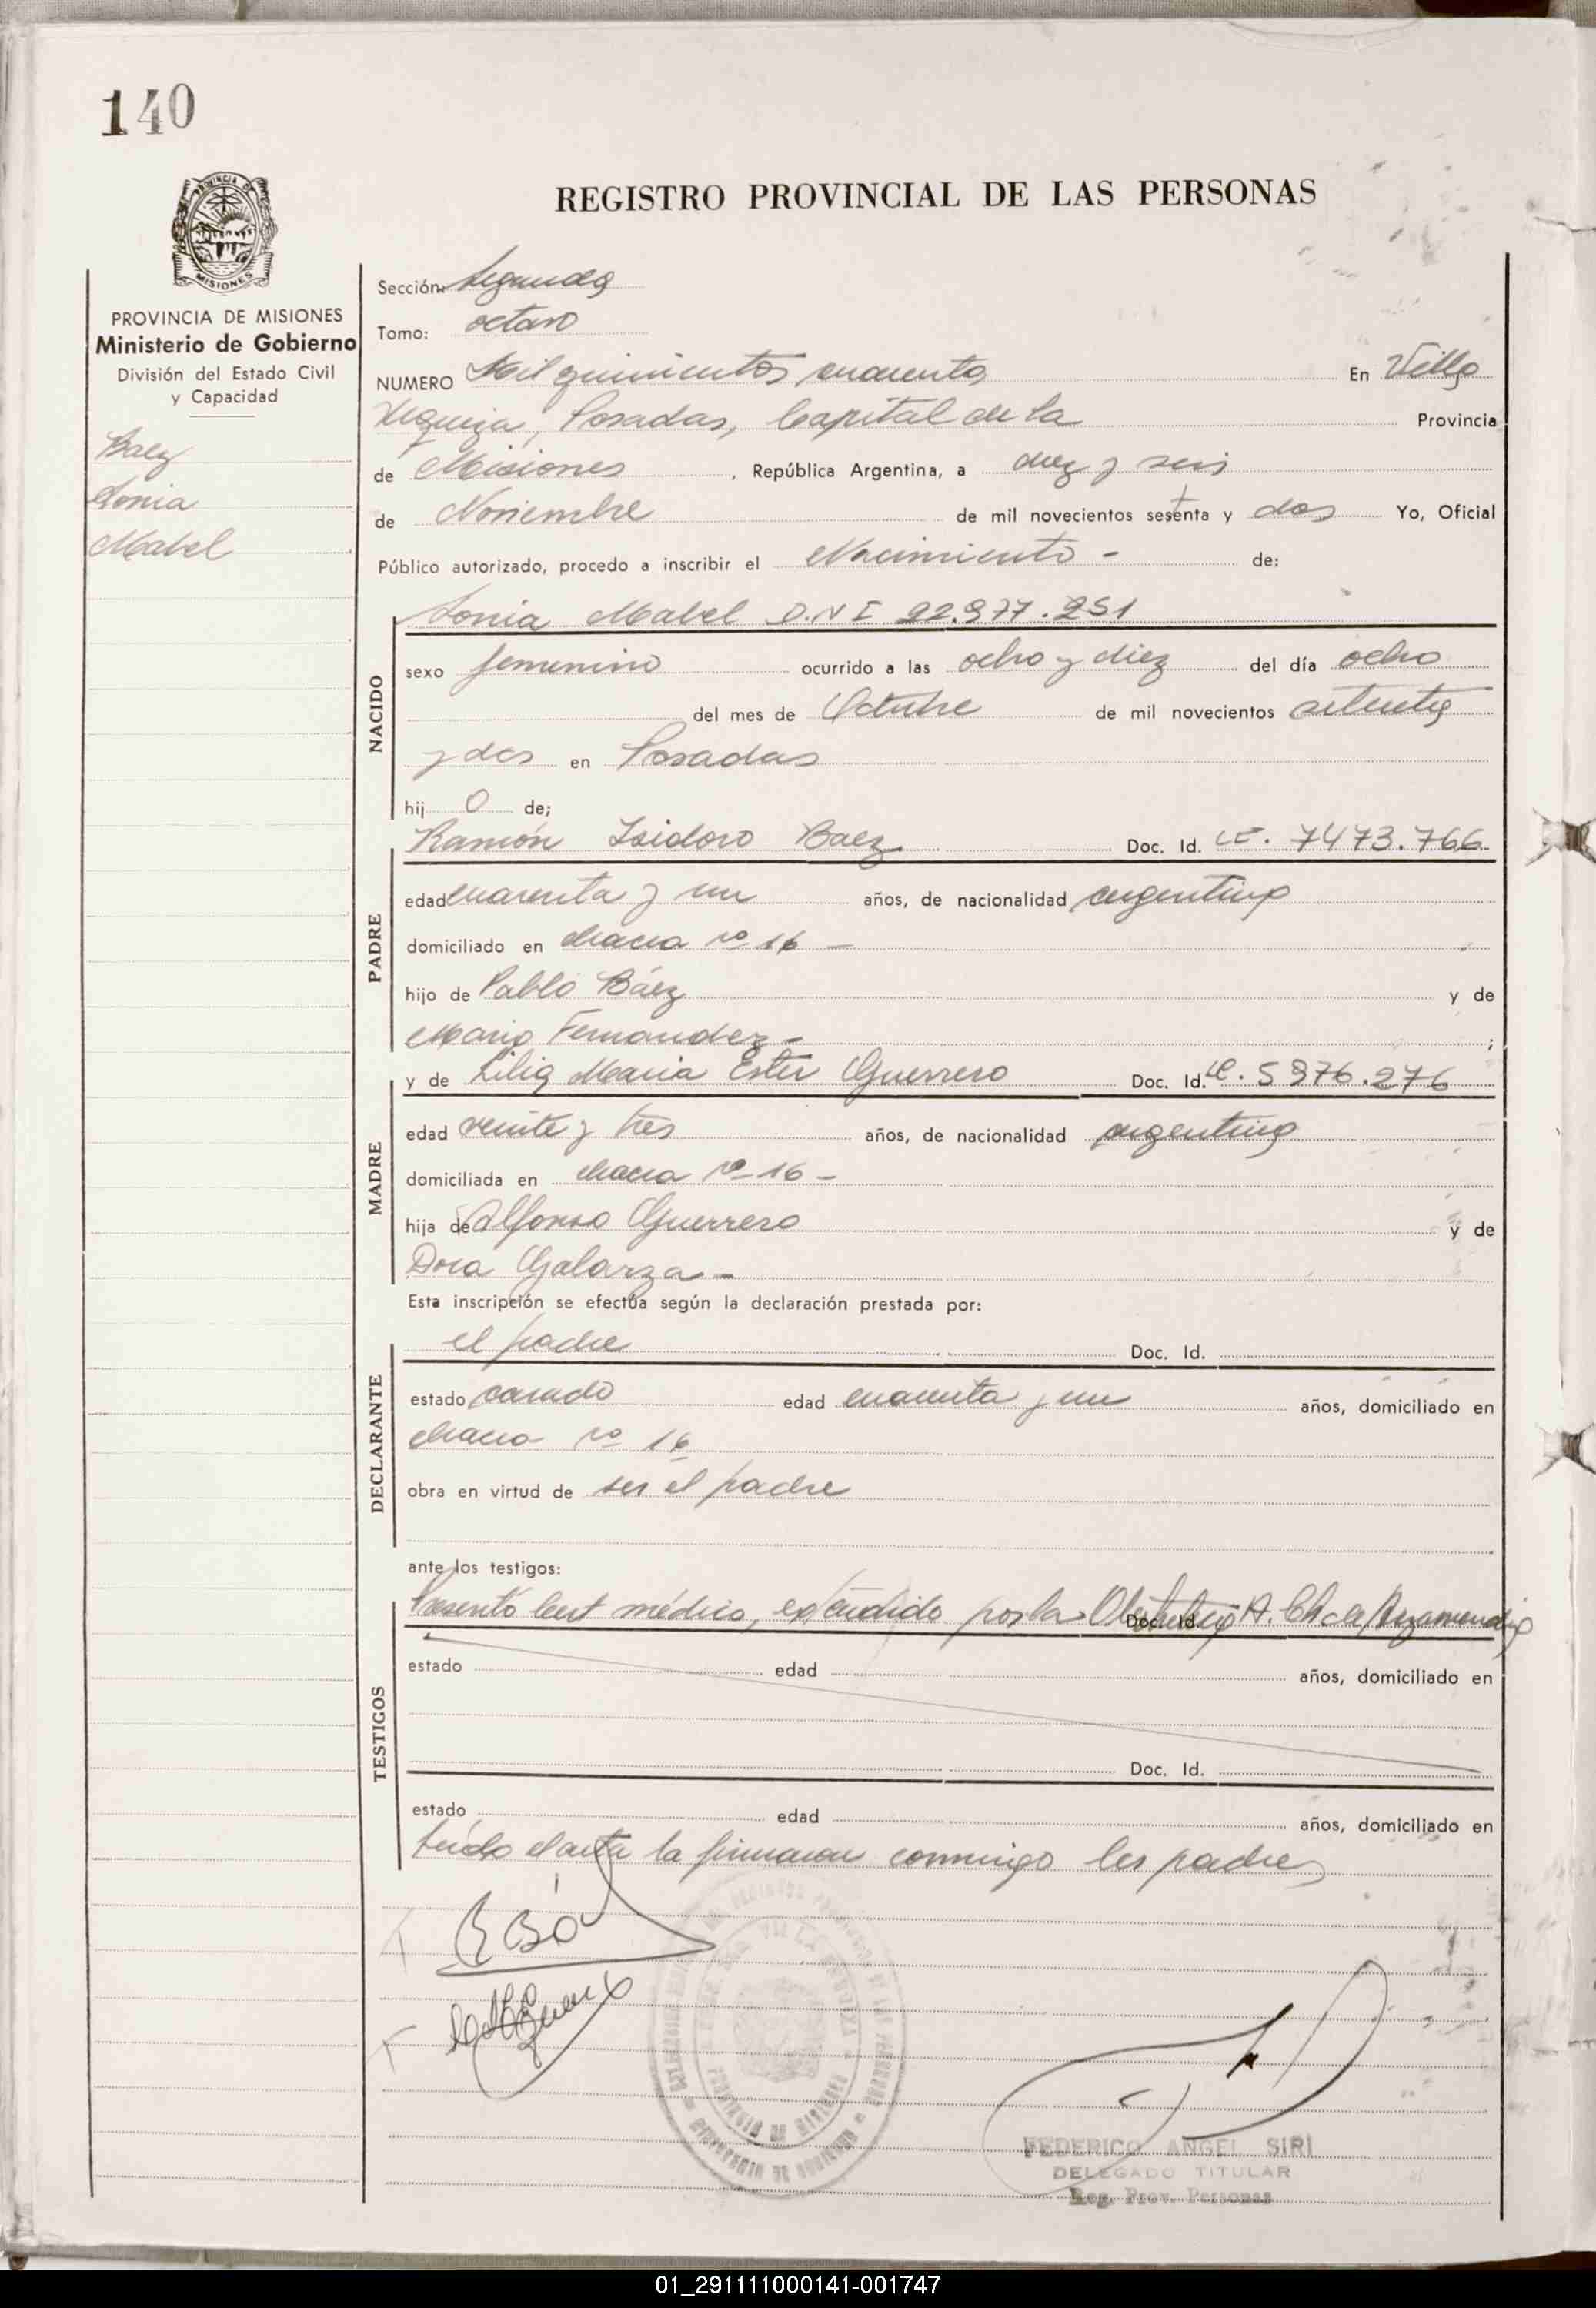 140
PROVINCIA DE
MISIONES
REGISTRO PROVINCIAL DE LAS PERSONAS
PROVINCIA DE MISIONES
Ministerio de Gobierno
División del Estado Civil
y Capacidad
Baez
Sonia
Mabel
Sección: Segunda
Tomo: octavo
NUMERO Mil quinientos cuarenta En Villa
Urquiza, Posadas, Capital de la Provincia
de Misiones, República Argentina, a diez y seis
de Noviembre de mil novecientos sesenta y dos Yo, Oficial
t
Público autorizado, procedo a inscribir el Nacimiento - de:
NACIDO
Sonia Mabel D.N I 22.977.251
sexo femenino ocurrido a las ocho y diez del día ocho
del mes de Octubre de mil novecientos setenta
y dos en Posadas
hij o de;
PADRE
Ramón Isidoro Baez Doc. Id. LE. 7473.766
edad cuarenta y un años, de nacionalidad argentino
domiciliado en chacra nº 16 -
hijo de Pablo Báez y de
Maria Fernandez - ;
MADRE
y de Lilia Maria Ester Guerrero Doc. Id. LC. 5976.276
edad veinte y tres años, de nacionalidad argentina
domiciliada en chacra nº 16 -
hija de Alfonso Guerrero y de
Dora Galarza -
Esta inscripción se efectúa según la declaración prestada por:
DECLARANTE
el padre Doc. Id.
estado casado edad cuarenta y un años, domiciliado en
chacra nº 16
obra en virtud de ser el padre
ante los testigos:
TESTIGOS
Presentó cert médico, extendido por la Obstetra A. Ch de Doc. Id.
estado edad años, domiciliado en
Doc. Id.
estado edad años, domiciliado en
Leída el acta la firmaron conmigo los padres
FEDERICO ANGEL SIRI
DELEGADO TITULAR
Reg. Prov. Personas
01_291111000141-001747